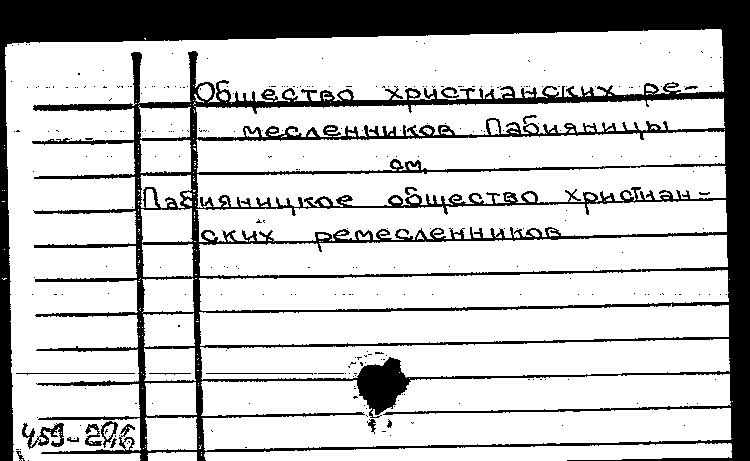 Общество христианских ре-
месленников Пабияницы
см.
Пабияницкое общество христиан-
ских ремесленников
459-286